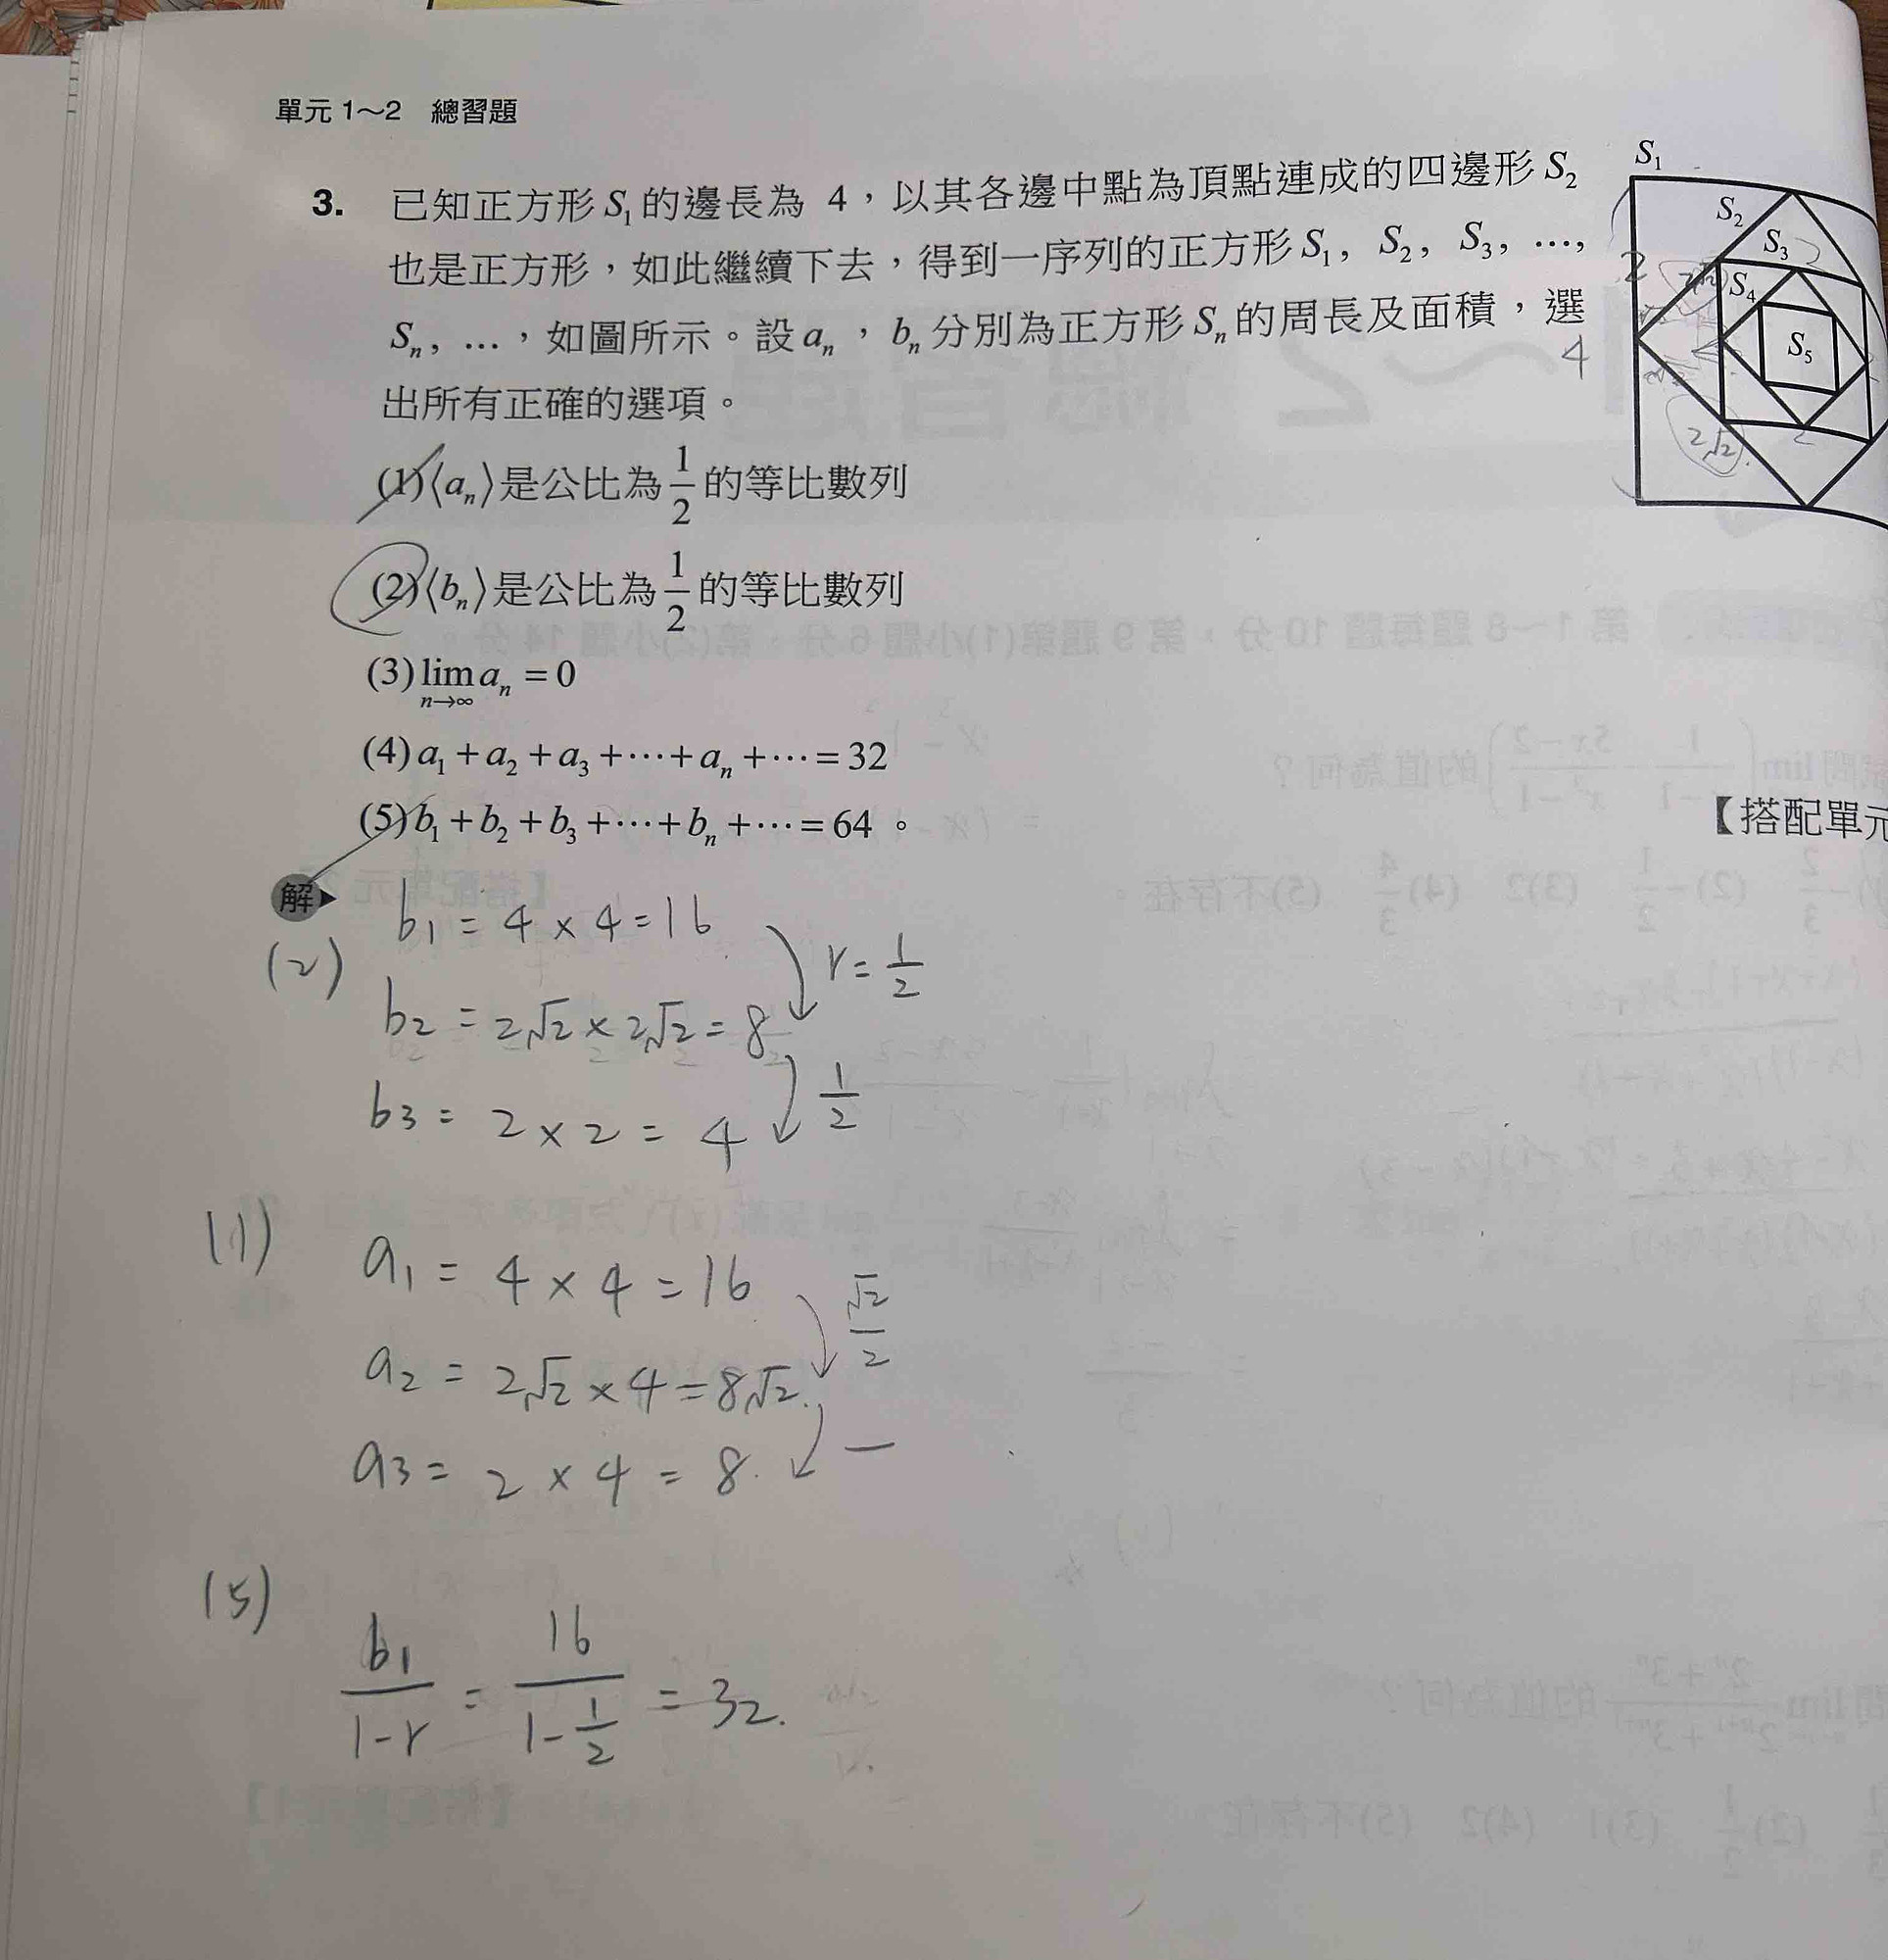 單元 1～2 總習題
3. 已知正方形 S₁ 的邊長為 4，以其各邊中點為頂點連成的四邊形 S₂
也是正方形，如此繼續下去，得到一序列的正方形 S₁， S₂， S₃， …，
Sₙ， …，如圖所示。設 aₙ ， bₙ 分別為正方形 Sₙ 的周長及面積，選
出所有正確的選項。
(1)⟨aₙ⟩是公比為 1/2 的等比數列
(2)⟨bₙ⟩是公比為 1/2 的等比數列
(3) lim n→∞ aₙ = 0
(4) a₁ + a₂ + a₃ + ⋯ + aₙ + ⋯ = 32
(5) b₁ + b₂ + b₃ + ⋯ + bₙ + ⋯ = 64 。
S₁
S₂
S₃
S₄
S₅
2
2√2
4
2√2
2
【搭配單元
解
(2) b₁ = 4 × 4 = 16
r = 1/2
b₂ = 2√2 × 2√2 = 8
1/2
b₃ = 2 × 2 = 4
(1) a₁ = 4 × 4 = 16
√2/2
a₂ = 2√2 × 4 = 8√2.
a₃ = 2 × 4 = 8.
(5) b₁/(1-r) = 16/(1-1/2) = 32.